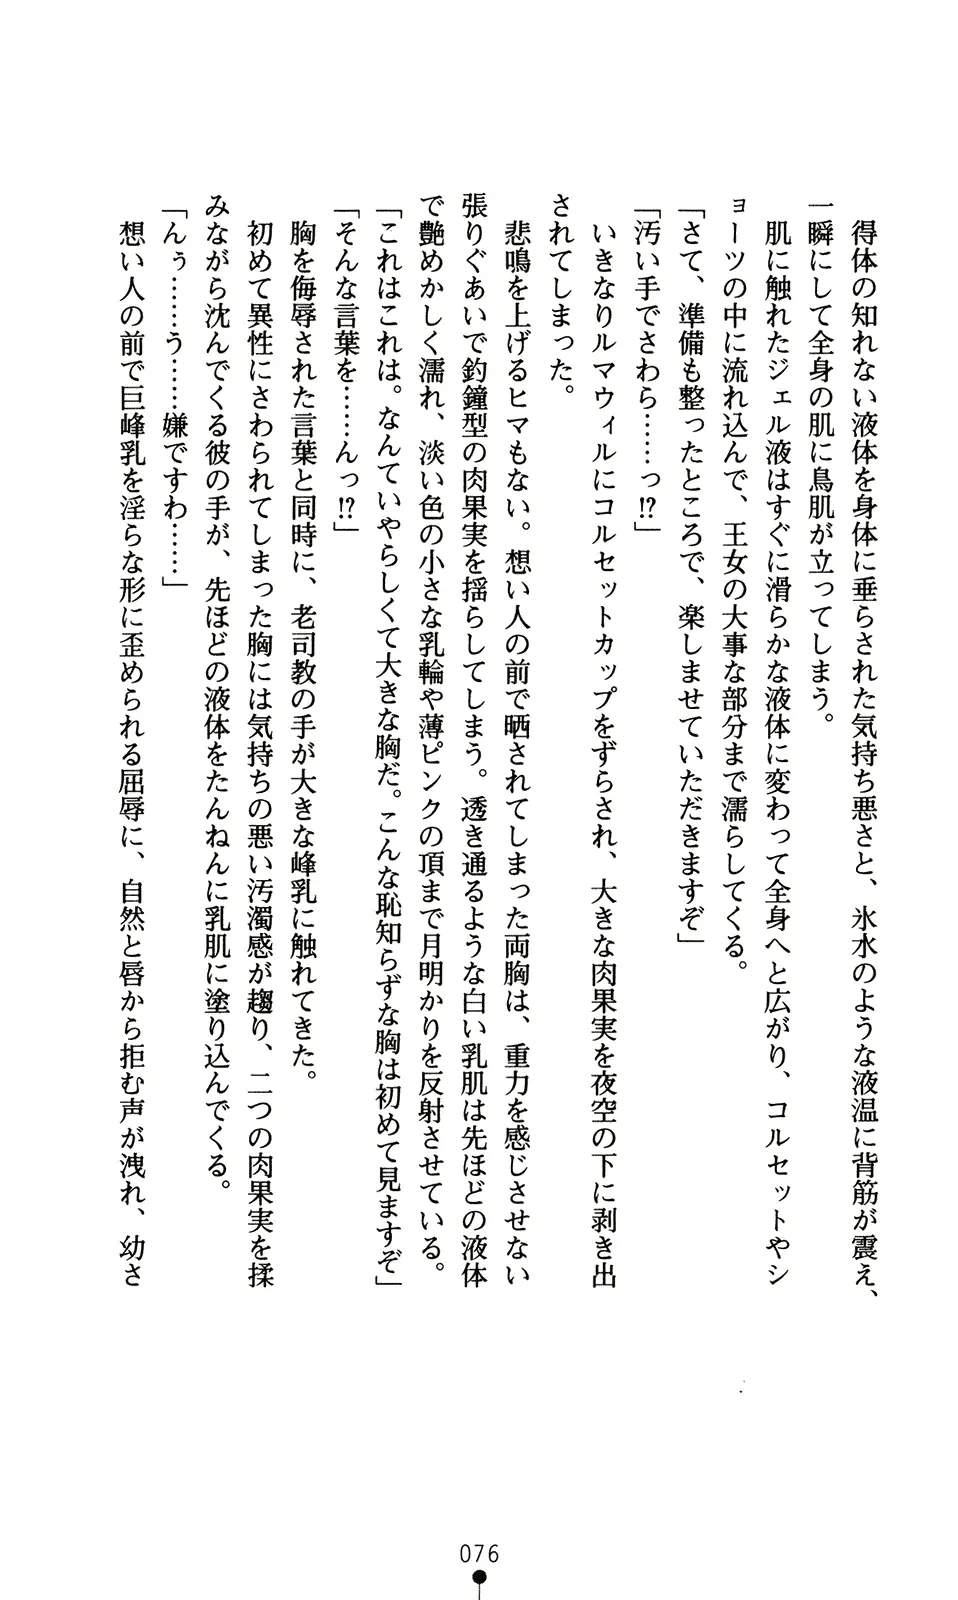 得体の知れない液体を身体に垂らされた気持ち悪さと、氷水のような液温に背筋が震え、
一瞬にして全身の肌に鳥肌が立ってしまう。
肌に触れたジェル液はすぐに滑らかな液体に変わって全身へと広がり、コルセットやシ
ョーツの中に流れ込んで、王女の大事な部分まで濡らしてくる。
「さて、準備も整ったところで、楽しませていただきますぞ」
「汚い手でさわら……っ!?」
いきなりルマウィルにコルセットカップをずらされ、大きな肉果実を夜空の下に剥き出
されてしまった。
悲鳴を上げるヒマもない。想い人の前で晒されてしまった両胸は、重力を感じさせない
張りぐあいで釣鐘型の肉果実を揺らしてしまう。透き通るような白い乳肌は先ほどの液体
で艶めかしく濡れ、淡い色の小さな乳輪や薄ピンクの頂まで月明かりを反射させている。
「これはこれは。なんていやらしくて大きな胸だ。こんな恥知らずな胸は初めて見ますぞ」
「そんな言葉を……んっ!?」
胸を侮辱された言葉と同時に、老司教の手が大きな峰乳に触れてきた。
初めて異性にさわられてしまった胸には気持ちの悪い汚濁感が趨り、二つの肉果実を揉
みながら沈んでくる彼の手が、先ほどの液体をたんねんに乳肌に塗り込んでくる。
「んぅ……う……嫌ですわ……」
想い人の前で巨峰乳を淫らな形に歪められる屈辱に、自然と唇から拒む声が洩れ、幼さ
076